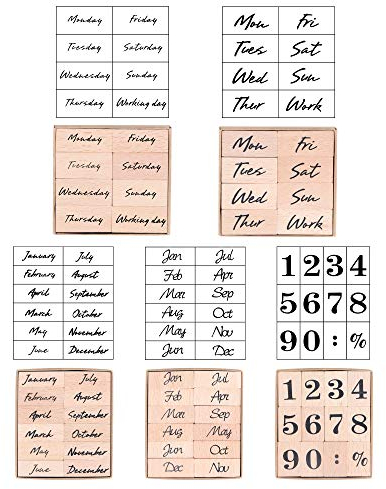 Monday Friday
Tuesday Saturday
Wednesday Sunday
Thursday Working day
Mon Fri
Tues Sat
Wed Sun
Thur Work
Monday Friday
Tuesday Saturday
Wednesday Sunday
Thursday Working day
Mon Fri
Tues Sat
Wed Sun
Thur Work
January July
February August
April September
March October
May November
June December
Jan Jul
Feb Apr
Mar Sep
Aug Oct
May Nov
Jun Dec
1 2 3 4
5 6 7 8
9 0 : %
January July
February August
April September
March October
May November
June December
Jan Jul
Feb Apr
Mar Sep
Aug May
Jun Oct
Dec Nov
1 2 3 4
5 6 7 8
9 0 : %